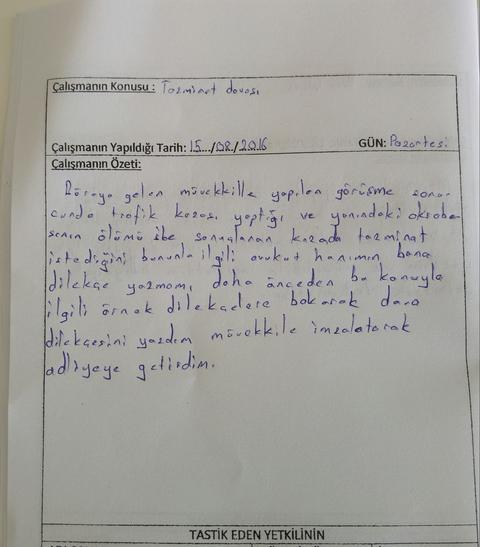 Çalışmanın Konusu : Tazminat davası
Çalışmanın Yapıldığı Tarih: 15.../08./2016 GÜN: Pazartesi
Çalışmanın Özeti:
Büroya gelen müvekkille yapılan görüşme sonu-
cunda trafik kazası yaptığı ve yanındaki akraba-
sının ölümü ile sonuçlanan kazada tazminat
istediğini bununla ilgili avukat hanımın bana
dilekçe yazmamı daha önceden bu konuyla
ilgili örnek dilekçelere bakarak dava
dilekçesini yazdım müvekkile imzalatarak
adliyeye getirdim.
TASTİK EDEN YETKİLİNİN